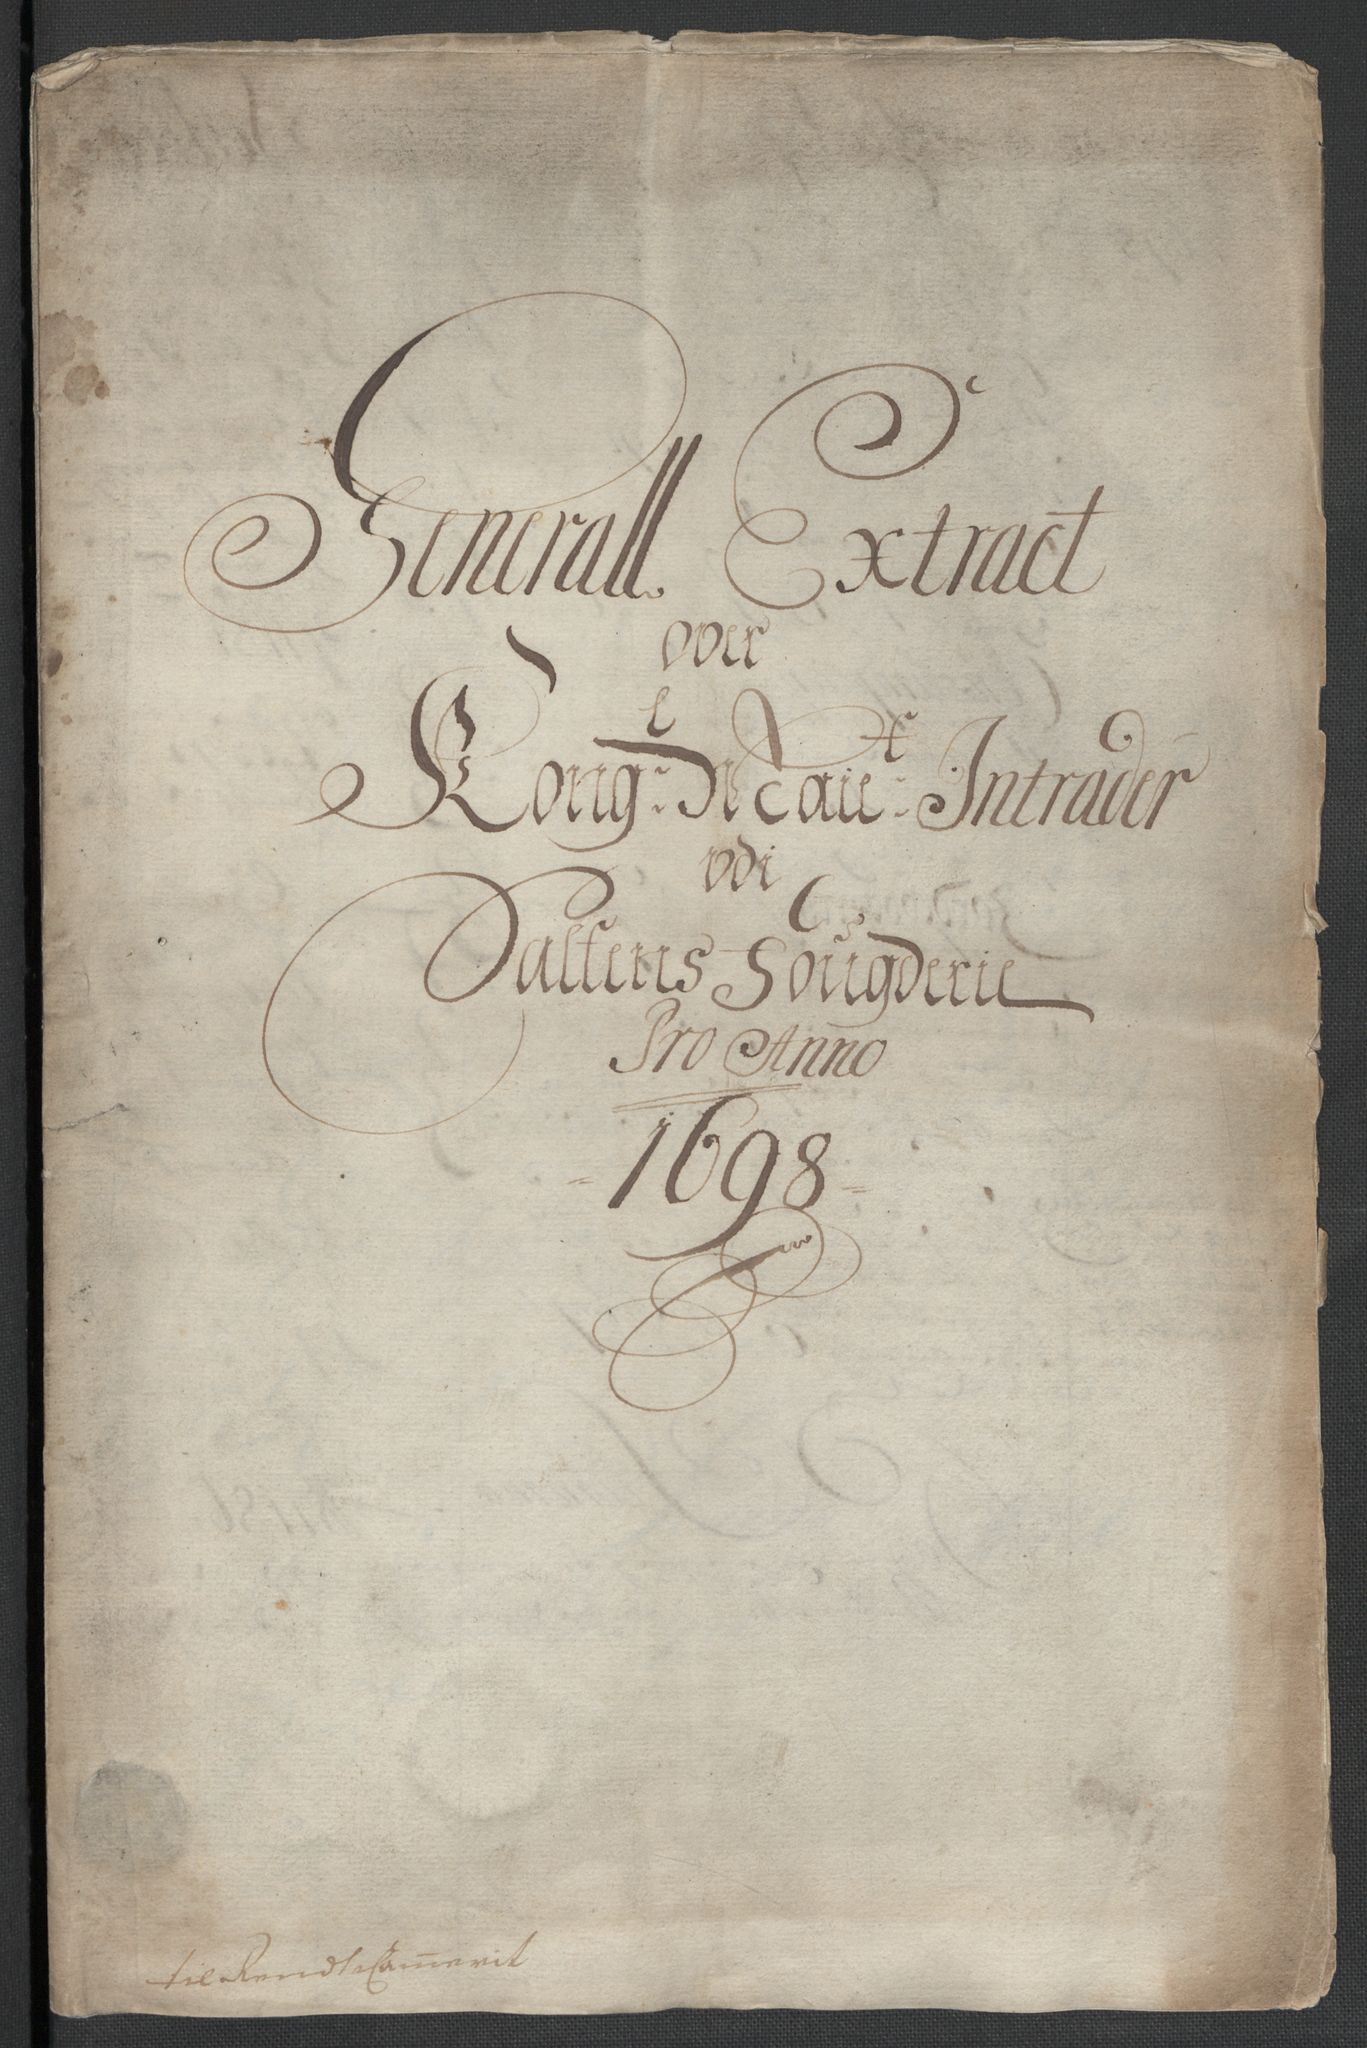 Generall Extract
over
Kong:l Maie:t Intrader
udi
Saltens Fougderie
Pro Anno
1698
til Rendte Cam̄erit